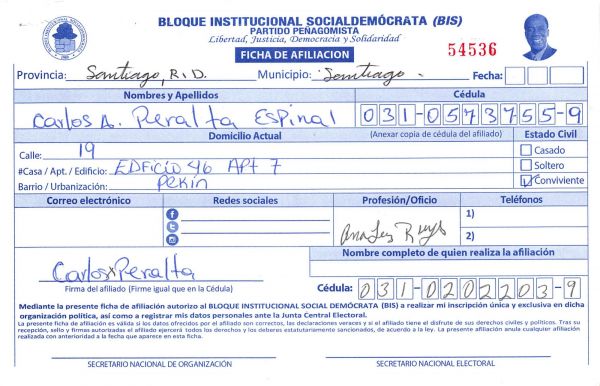 BLOQUE INSTITUCIONAL SOCIALDEMÓCRATA (BIS)
PARTIDO PEÑAGOMISTA
Libertad, Justicia, Democracia y Solidaridad
FICHA DE AFILIACION
54536
Provincia: Santiago, R.D. Municipio: Santiago. Fecha:
Nombres y Apellidos Cédula
Carlos A. Peralta Espinal 031-0573755-9
Domicilio Actual (Anexar copia de cédula del afiliado) Estado Civil
Calle: 19 Casado
#Casa / Apt. / Edificio: EDFicio 46 APt 7 Soltero
Barrio / Urbanización: Pekin Conviviente
Correo electrónico Redes sociales Profesión/Oficio Teléfonos
1)
2)
Nombre completo de quien realiza la afiliación
Carlos Peralta
Firma del afiliado (Firme igual que en la Cédula) Cédula: 031-0202203-9
Mediante la presente ficha de afiliación autorizo al BLOQUE INSTITUCIONAL SOCIAL DEMÓCRATA (BIS) a realizar mi inscripción única y exclusiva en dicha
organización política, así como a registrar mis datos personales ante la Junta Central Electoral.
La presente ficha de afiliación es válida si los datos ofrecidos por el afiliado son correctos, las declaraciones veraces y si el afiliado tiene el disfrute de sus derechos civiles y políticos. Tras su
recepción, sello y firmas autorizadas el afiliado ejercerá todos los derechos y los deberes estatutariamente sancionados, de acuerdo a la ley. La presente afiliación anula cualquier afiliación
realizada con anterioridad a la fecha que aparece en esta ficha.
SECRETARIO NACIONAL DE ORGANIZACIÓN SECRETARIO NACIONAL ELECTORAL